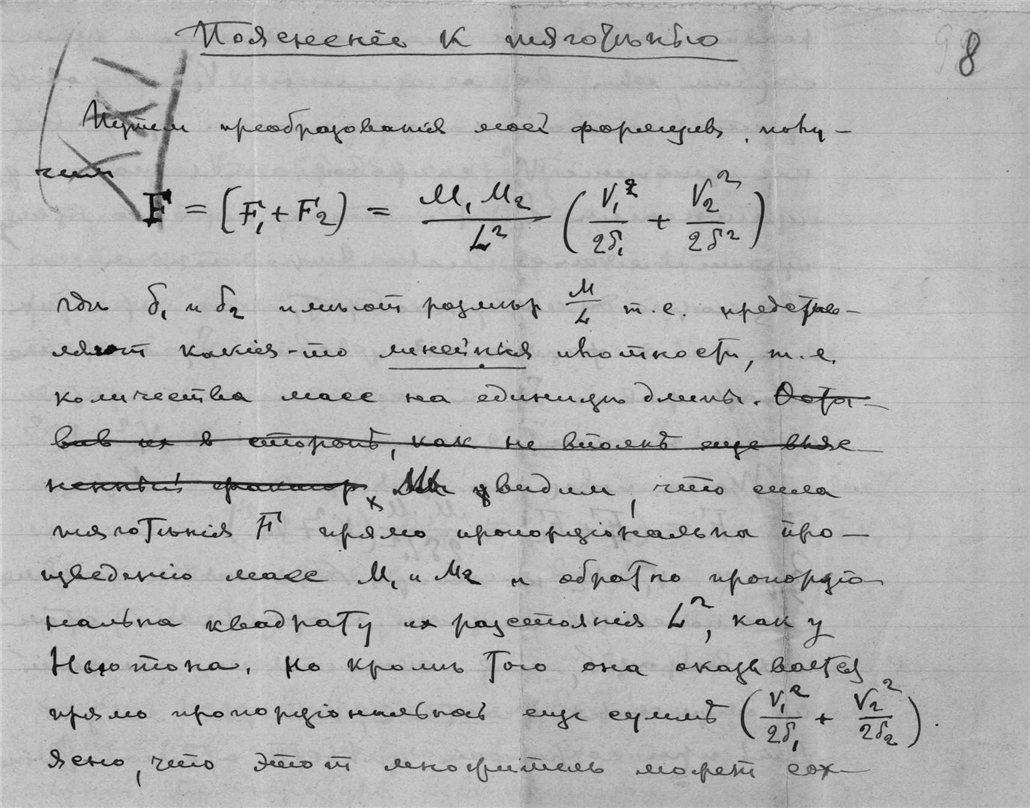 Поясненiе к тяготѣнiю
8
Путем преобразованiя моей формулы, полу-
чим
F = (F₁ + F₂) = M₁ M₂ / L² (V₁² / 2δ₁ + V₂² / 2δ²)
гдѣ δ₁ и δ₂ имѣют размѣр M/L т.е. представ-
ляют какiя-то линейныя плотности, т.е.
количества масс на единицу длины. Оста-
вив их в сторонѣ, как не вполнѣ еще выяс-
ненный фактор, Мы увидим, что сила
тяготѣнiя F прямо пропорцiональна про-
изведенiю масс M₁ и M₂ и обратно пропорцiо-
нальна квадрату их разстоянiя L², как у
Ньютона. Но кромѣ того она оказывается
прямо пропорцiональной еще суммѣ (V₁² / 2δ₁ + V₂² / 2δ₂).
Ясно, что этот множитель может сох-